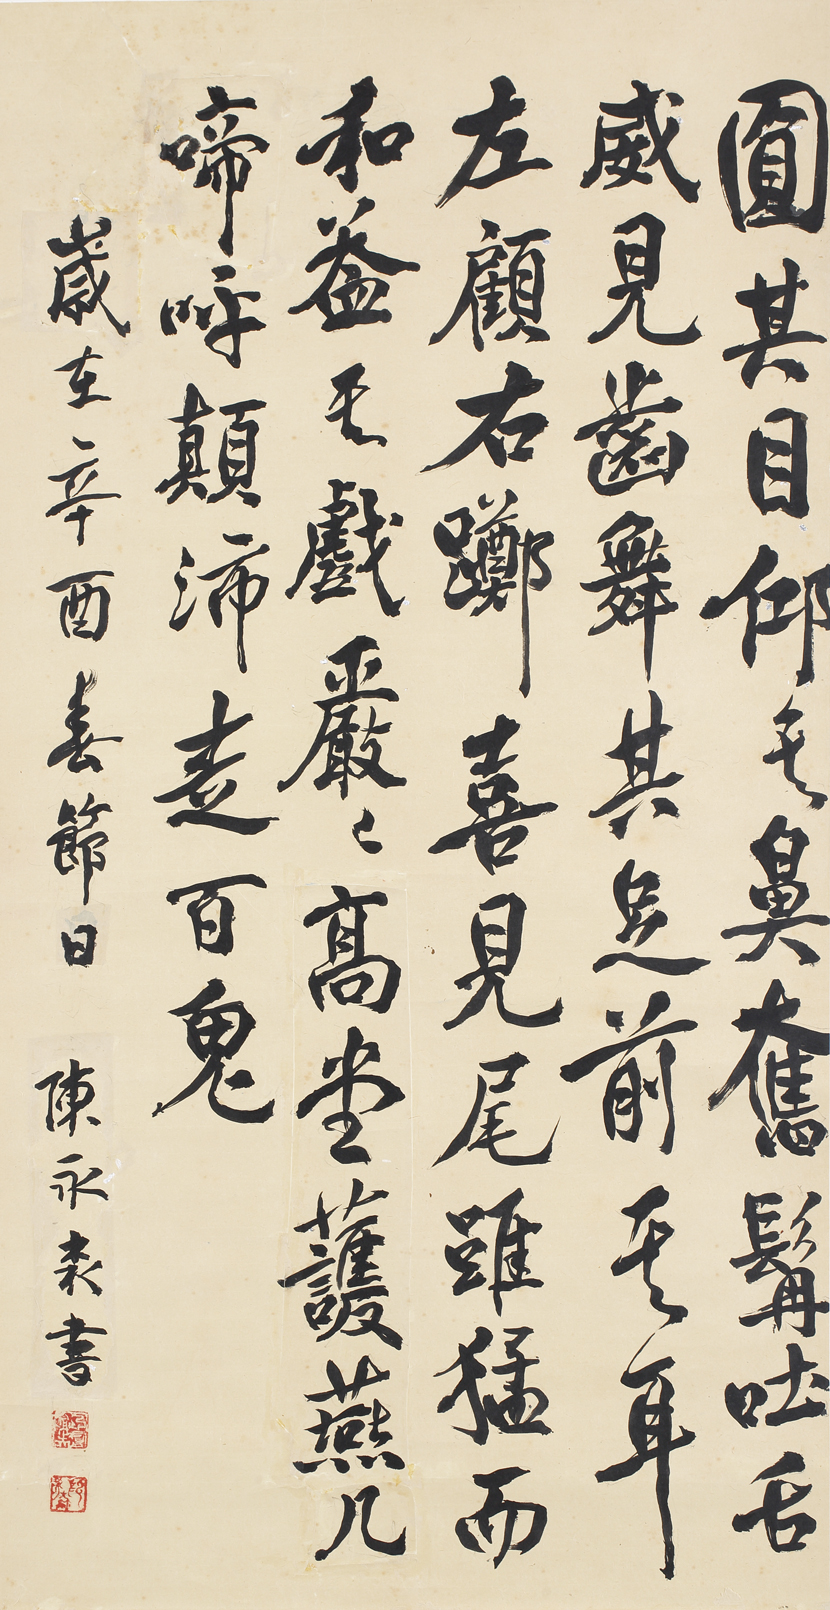 圓其目仰其鼻奮髯吐舌
威見齒舞其足前其耳
左顧右躑喜見尾雖猛而
和蓋其戲嚴〻高堂護燕几
啼呼顛沛走百鬼
歲在辛酉春節日 陳永森書